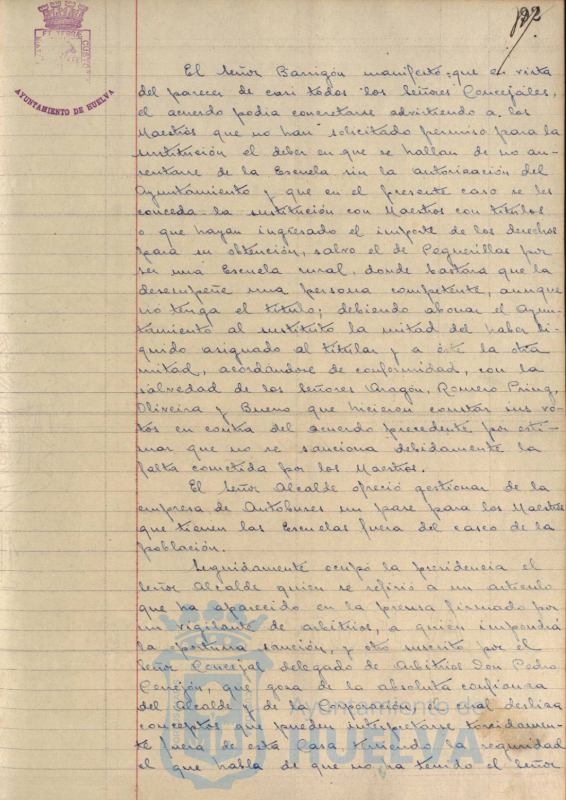 192
AYUNTAMIENTO DE HUELVA
El Señor Barrigón manifestó que en vista
del parecer de casi todos los Señores Concejales,
el acuerdo podia concretarse advirtiendo a los
Maestros que no han solicitado permiso para la
sustitución el deber en que se hallan de no au-
sentarse de la Escuela sin la autorización del
Ayuntamiento y que en el presente caso se les
conceda la sustitución con Maestros con titulos
o que hayan ingresado el importe de los derechos
para su obtención, salvo el de Peguerillas por
ser una Escuela rural, donde bastará que la
desempeñe una persona competente, aunque
no tenga el titulo; debiendo abonar el Ayun-
tamiento al sustituto la mitad del haber li-
quido asignado al titular y a éste la otra
mitad, acordándose de conformidad, con la
salvedad de los Señores Aragón, Romero Pring,
Oliveira y Bueno que hicieron constar sus vo-
tos en contra del acuerdo precedente por esti-
mar que no se sanciona debidamente la
falta cometida por los Maestros.
El Señor Alcalde ofreció gestionar de la
empresa de Autobuses un pase para los Maestros
que tienen las Escuelas fuera del casco de la
población.
Seguidamente ocupó la presidencia el
Señor Alcalde quien se refirió a un articulo
que ha aparecido en la prensa firmado por
un vigilante de arbitrios, a quién impondrá
la oportuna sanción, y otro suscrito por el
Señor Concejal delegado de Arbitrios Don Pedro
Cerejón, que goza de la absoluta confianza
del Alcalde y de la Corporación, el cual desliza
conceptos que pueden interpretarse torcidamen-
te fuera de esta Casa, teniendo la seguridad
el que habla de que no ha tenido el Señor
Ayuntamiento de
HUELVA